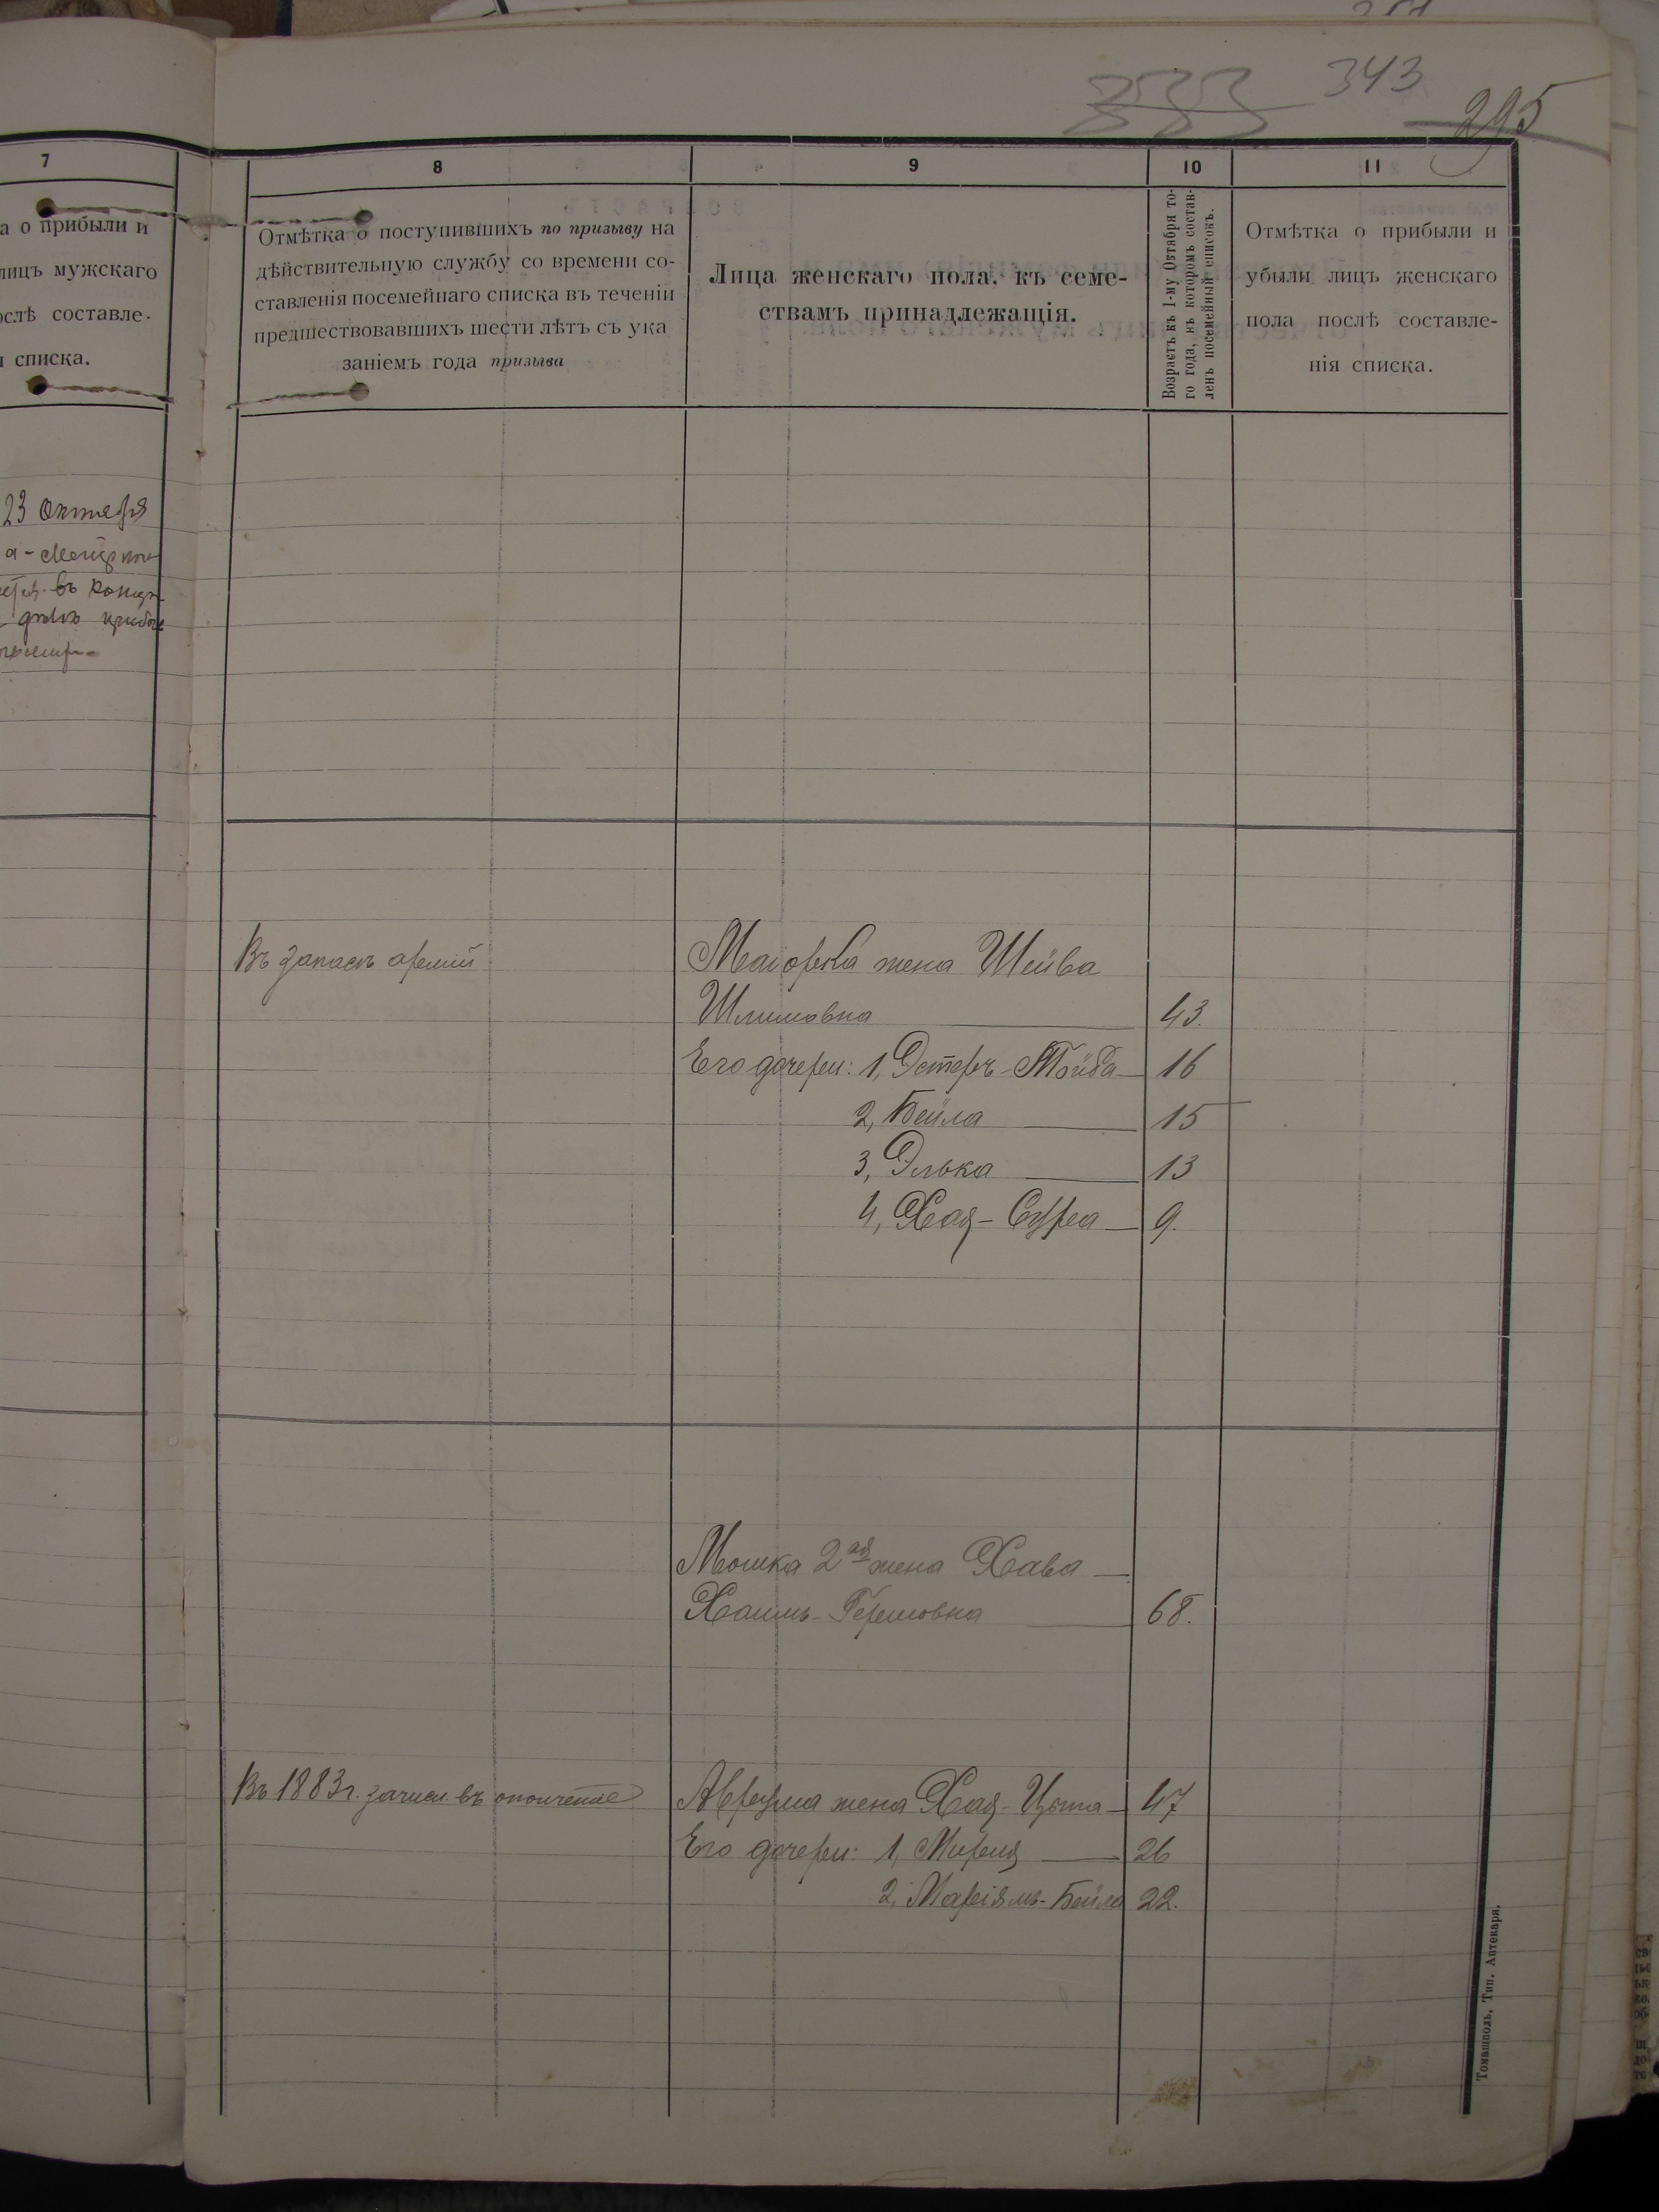 343
295
7
а о прибыли и
лицъ мужскаго
ослѣ составле-
я списка.
23 Октября
8
Отмѣтка о поступившихъ по призыву на
дѣйствительную службу со времени со-
ставленія посемейнаго списка въ теченіи
предшествовавшихъ шести лѣтъ съ ука
заніемъ года призыва
9
Лица женскаго пола, къ семе-
ствамъ принадлежащія.
10
Возрастъ къ 1-му Октября то-
го года, въ которомъ состав-
ленъ посемейный списокъ.
11
Отмѣтка о прибыли и
убыли лицъ женскаго
пола послѣ составле-
нія списка.
Въ запасъ арміи
жена Шейва
Шлимовна 43.
Его дочери: 1, Эстеръ-Тойба 16
2, Бейла 15
3, Элька 13
4, Хая-Сура 9.
Мошка 2ая жена Хава
Хаимъ-Гершовна 68.
Въ 1883 г. зачисл. въ ополченіе
Аврума жена Хая-Цыпа 47
Его дочери: 1, Миреля 26
2, Маріямъ-Бейла 22.
Томашполь, Тип. Аптекаря.